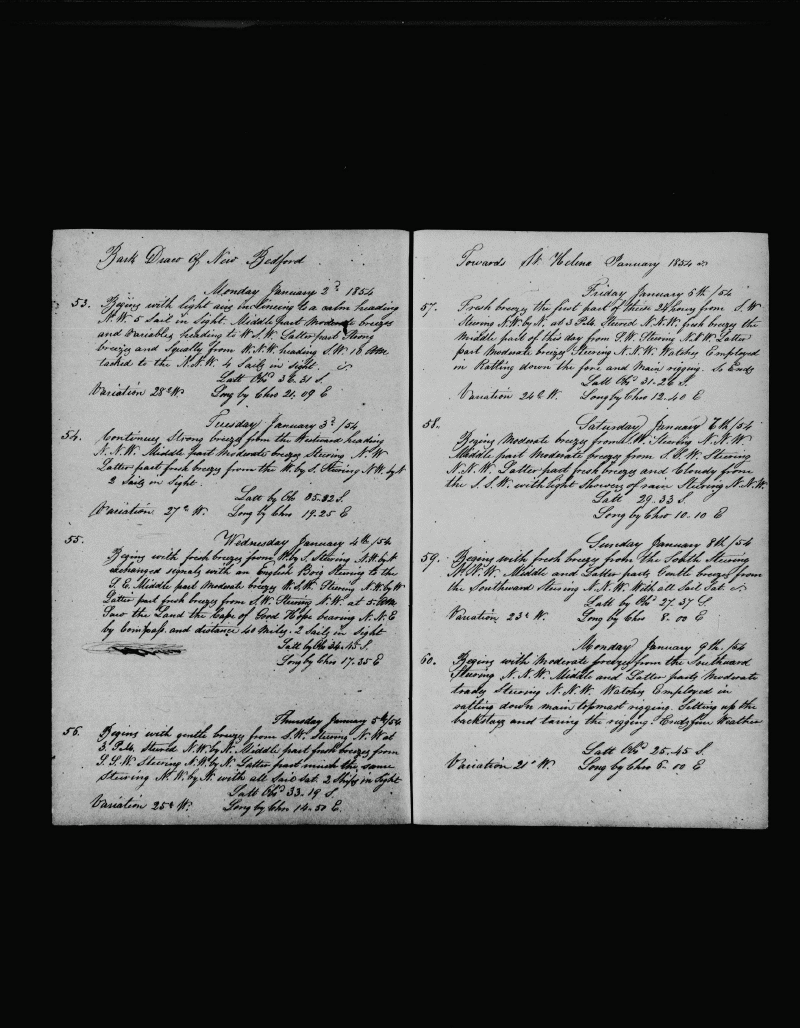 Bark Draco Of New Bedford
Monday January 2d 1854
53. Begins with light airs inclineing to a calm heading
N.W. 5 Sail in Sight. Middle part Moderate breezes
and Variables, heading to W.S.W. Latter part Strong
breezes and Squally from W.N.W. heading S.W. 10 AM
tacked to the N.N.W. 4 Sails in sight.
Latt Obsd 36.31 S.
Variation 28° W. Long by Chro 21.09 E
Tuesday January 3d /54
54. Continues Strong breezes from the Westward heading
N.N.W. Middle Part Moderate breezes Steering N.W
Latter part fresh breezes from the W. by S. Steering N.W. by N
2 Sails in Sight.
Latt by Ob 35.22 S.
Variation 27° W. Long by Chro 19.25 E
Wednesday January 4th /54
55. Begins with fresh breezes from W. by S. Steering N.W. by N
exchanged signals with an English Steering to the
S.E. Middle part Moderate breezes W.S.W. Steering N.W. by W
Latter part fresh breezes from S.W. Steering N.W. at 5 AM
Saw the Land the Cape of Good Hope bearing N.N.E
by Compass. and distance 40 Miles. 2 Sails in Sight
Latt by Ob 34.45 S.
Long by Chro 17.35 E
Thursday January 5th /54
56. Begins with gentle breezes from S.W. Steering N.W at
3 P.M. Steered N.W. by N. Middle part fresh breezes from
S.S.W Steering N.W. by N. Latter part much the same
Steering N.W. by N. with all Sail Sat. 2 Ships in Sight
Latt Obsd 33.19 S.
Variation 25° W. Long by Chro 14.50 E.
Towards St. Helena January 1854
Friday January 6th /54
57. Fresh breezes the first part of these 24 hours from S.W
Steering N.W. by N. at 3 P.M. Steered N.N.W. fresh breezes the
Middle part of this day from S.W. Steering N.N.W. Latter
part Moderate breezes Steering N.N.W. Watches Employed
in Ratling down the fore and Main rigging. So Ends
Latt Obsd 31.26 S.
Variation 24° W. Long by Chro 12.40 E
Saturday January 7th /54
58. Begins Moderate breezes from S.W. Steering N.N.W
Middle part Moderate breezes from S.S.W. Steering
N.N.W. Latter part fresh breezes and Cloudy from
the S.S.W. with light Showers of rain Steering N.N.W.
Latt 29.33 S.
Long by Chro 10.10 E
Sunday January 8th /54
59. Begins with fresh breezes from the South Steering
N.N.W. Middle and Latter parts Gentle breezes from
the Southward Steering N.N.W. With all Sail Sat.
Latt by Obs 27.37 S.
Variation 23° W. Long by Chro 8.00 E
Monday January 9th /54
60. Begins with Moderate breezes from the Southward
Steering N.N.W. Middle and Latter parts Moderate
trades Steering N.N.W. Watches Employed in
ratling down main topmast rigging. Setting up the
backstays and taring the rigging. Ends fine Weather
Latt Obsd 25.45 S.
Variation 21° W. Long by Chro 6.00 E